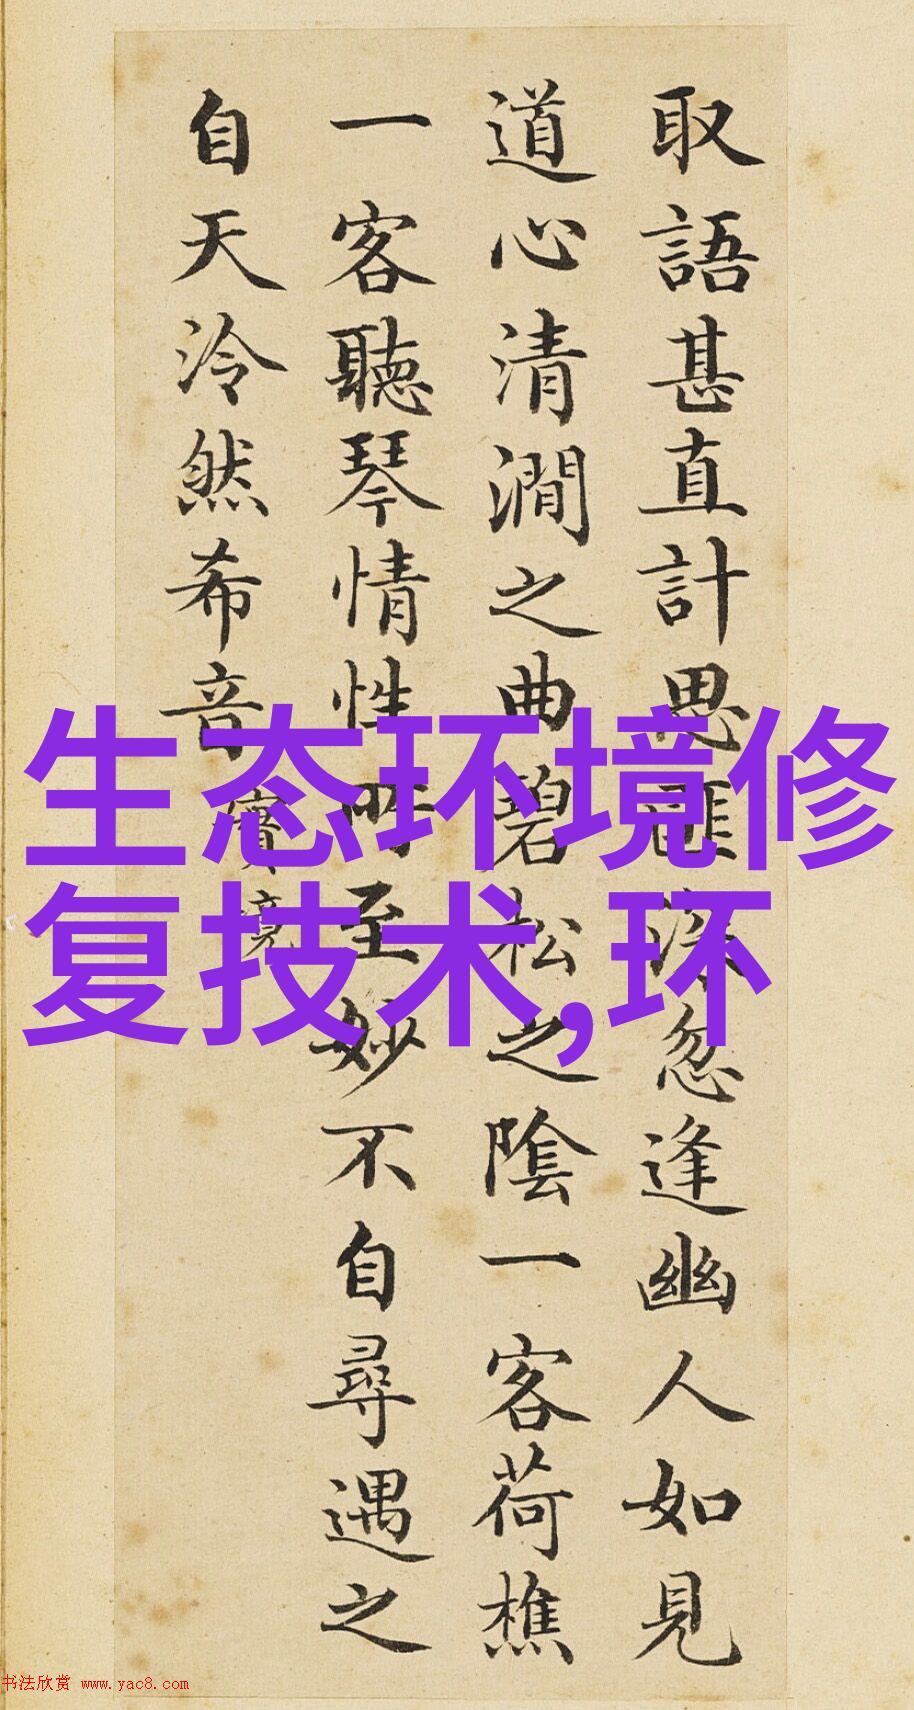 取語甚直計思匪深忽逢幽人如見
道心清澗之曲碧松之陰一客荷樵
一客聽琴情性所至妙不自尋遇之
自天泠然希音 實境
生态环境修
复技术,环
书法欣赏 www.yac8.com